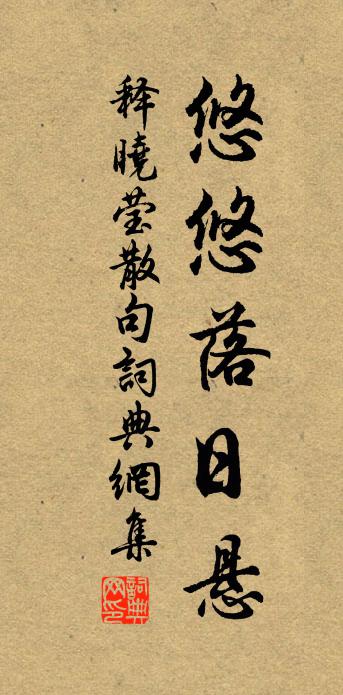 悠悠落日悬
释晓莹散句詞典網集
詞典网印